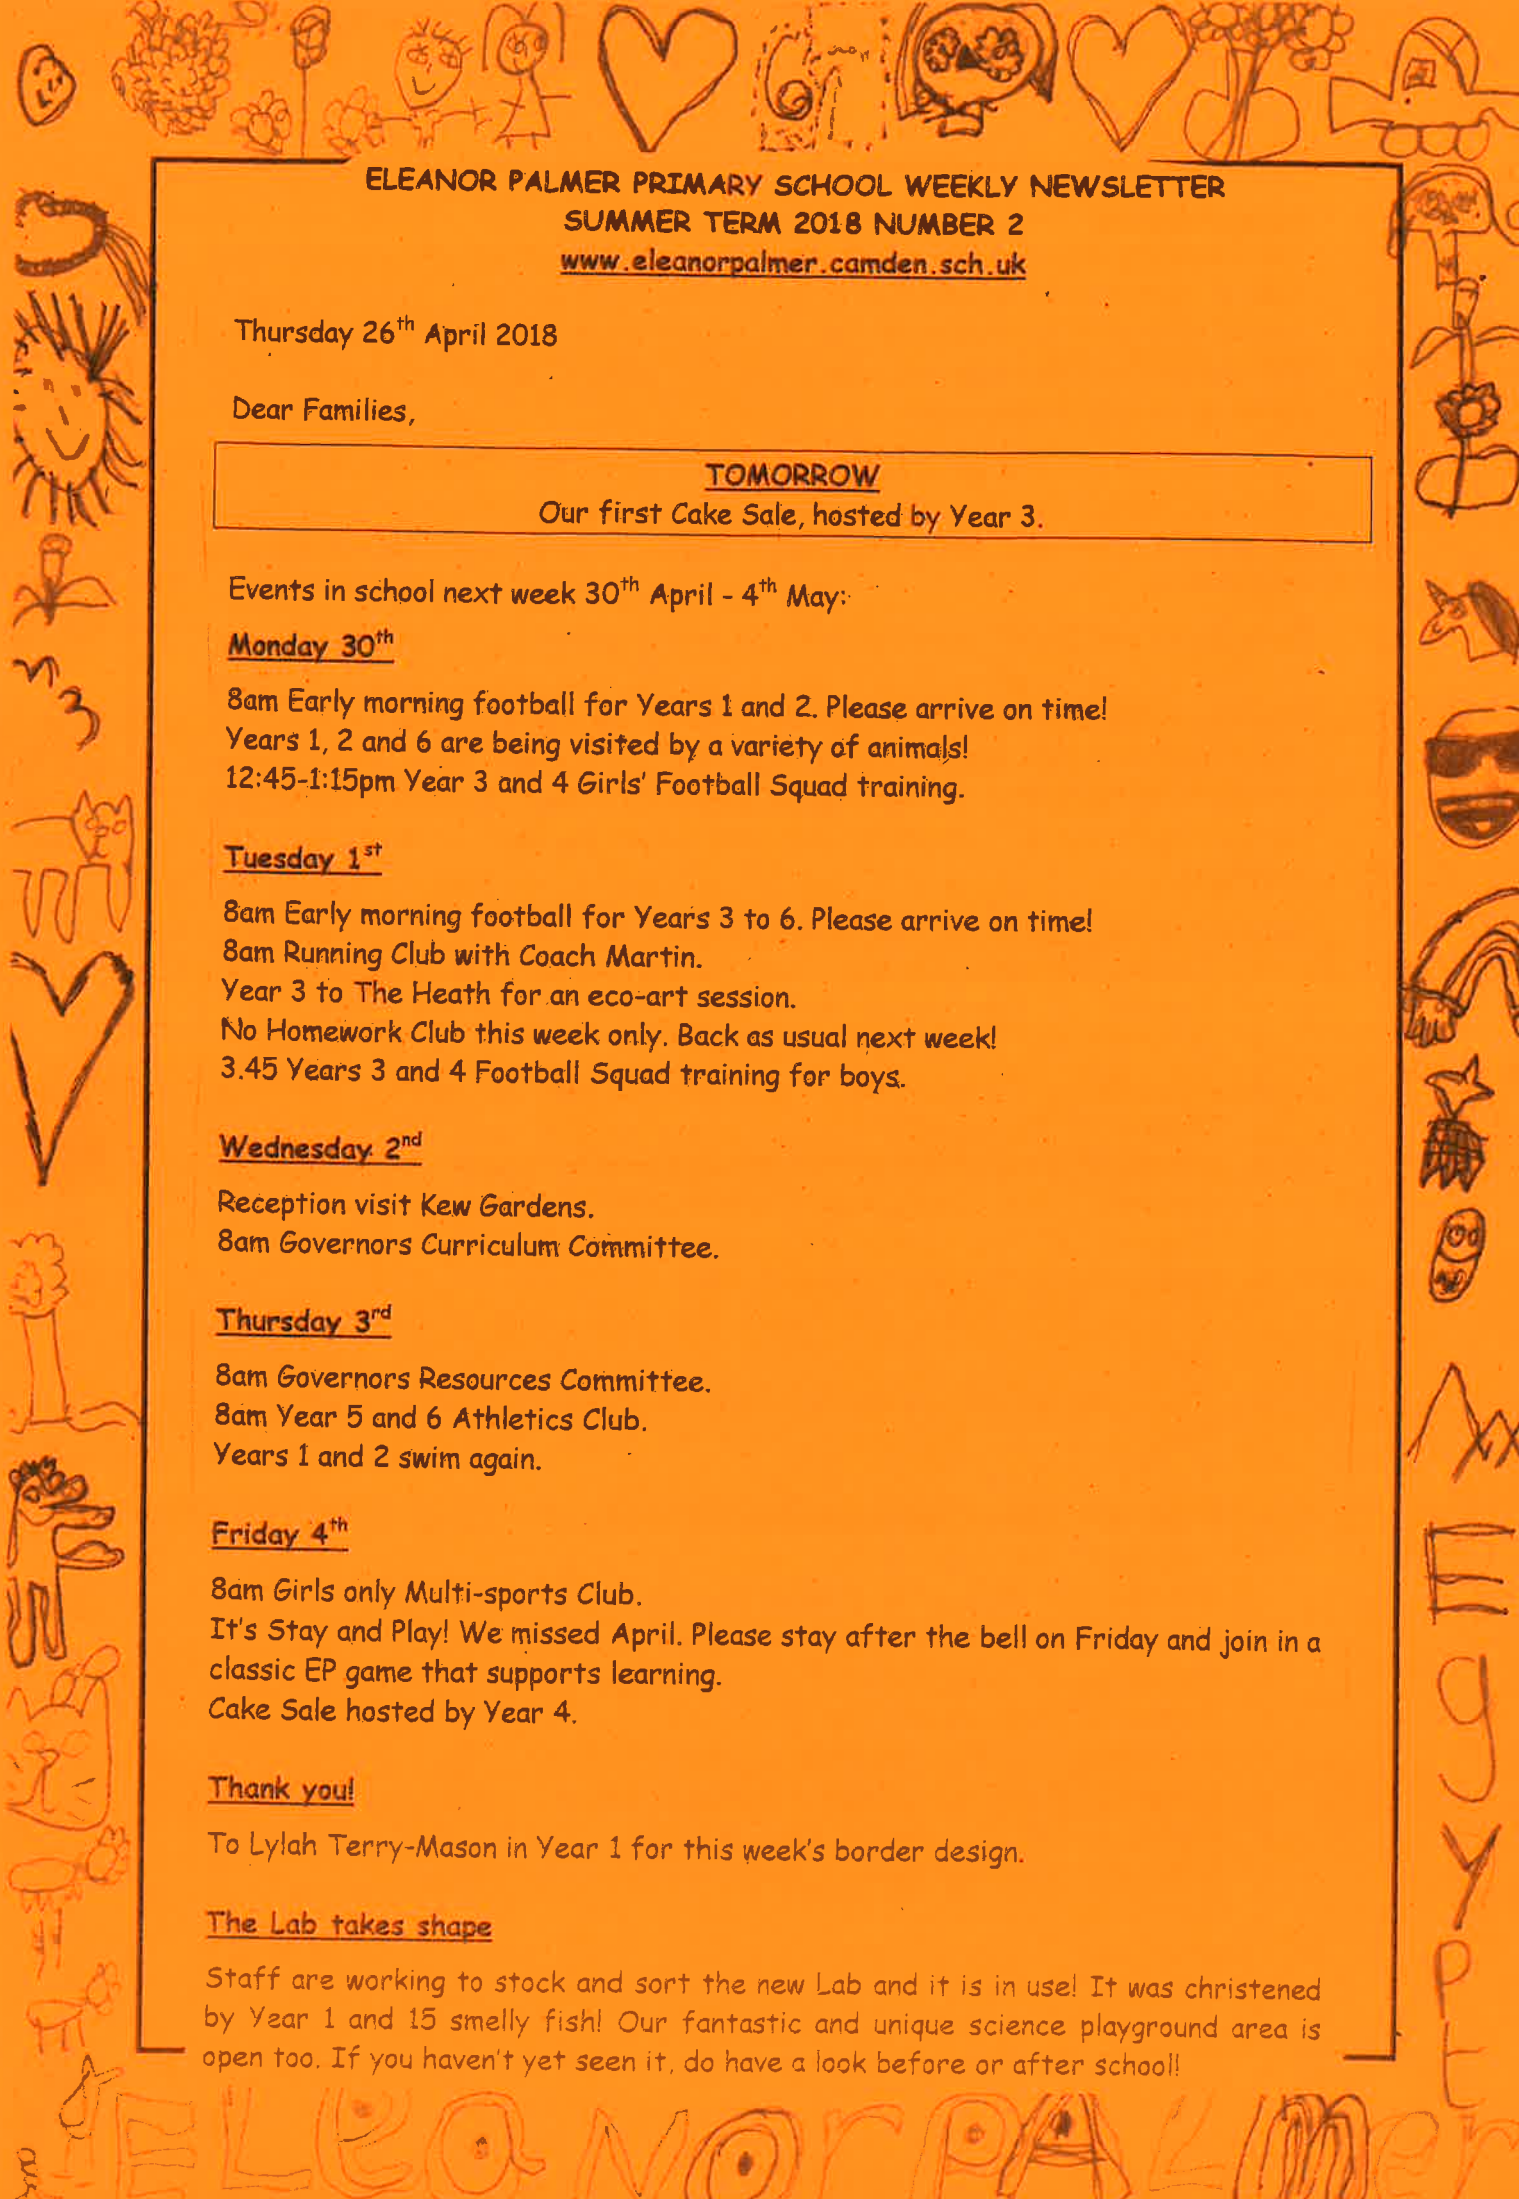 ELEANOR PALMER PRIMARY SCHOOL WEEKLY NEWSLETTER
SUMMER TERM 2018 NUMBER 2
www.eleanorpalmer.camden.sch.uk
Thursday 26th April 2018
Dear Families,
TOMORROW
Our first Cake Sale, hosted by Year 3.
Events in school next week 30th April - 4th May:
Monday 30th
8am Early morning football for Years 1 and 2. Please arrive on time!
Years 1, 2 and 6 are being visited by a variety of animals!
12:45-1:15pm Year 3 and 4 Girls' Football Squad training.
Tuesday 1st
8am Early morning football for Years 3 to 6. Please arrive on time!
8am Running Club with Coach Martin.
Year 3 to The Heath for an eco-art session.
No Homework Club this week only. Back as usual next week!
3.45 Years 3 and 4 Football Squad training for boys.
Wednesday 2nd
Reception visit Kew Gardens.
8am Governors Curriculum Committee.
Thursday 3rd
8am Governors Resources Committee.
8am Year 5 and 6 Athletics Club.
Years 1 and 2 swim again.
Friday 4th
8am Girls only Multi-sports Club.
It's Stay and Play! We missed April. Please stay after the bell on Friday and join in a
classic EP game that supports learning.
Cake Sale hosted by Year 4.
Thank you!
To Lylah Terry-Mason in Year 1 for this week's border design.
The Lab takes shape
Staff are working to stock and sort the new Lab and it is in use! It was christened
by Year 1 and 15 smelly fish! Our fantastic and unique science playground area is
open too. If you haven't yet seen it, do have a look before or after school!
Egypt
ELeaNor PALmer